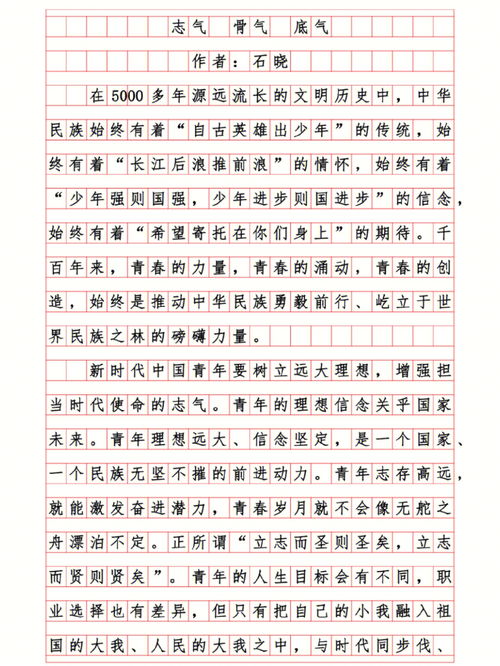 志气 骨气 底气
作者：石晓
在5000多年源远流长的文明历史中，中华
民族始终有着“自古英雄出少年”的传统，始
终有着“长江后浪推前浪”的情怀，始终有着
“少年强则国强，少年进步则国进步”的信念，
始终有着“希望寄托在你们身上”的期待。千
百年来，青春的力量，青春的涌动，青春的创
造，始终是推动中华民族勇毅前行、屹立于世
界民族之林的磅礴力量。
新时代中国青年要树立远大理想，增强担
当时代使命的志气。青年的理想信念关乎国家
未来。青年理想远大、信念坚定，是一个国家、
一个民族无坚不摧的前进动力。青年志存高远，
就能激发奋进潜力，青春岁月就不会像无舵之
舟漂泊不定。正所谓“立志而圣则圣矣，立志
而贤则贤矣”。青年的人生目标会有不同，职
业选择也有差异，但只有把自己的小我融入祖
国的大我、人民的大我之中，与时代同步伐、